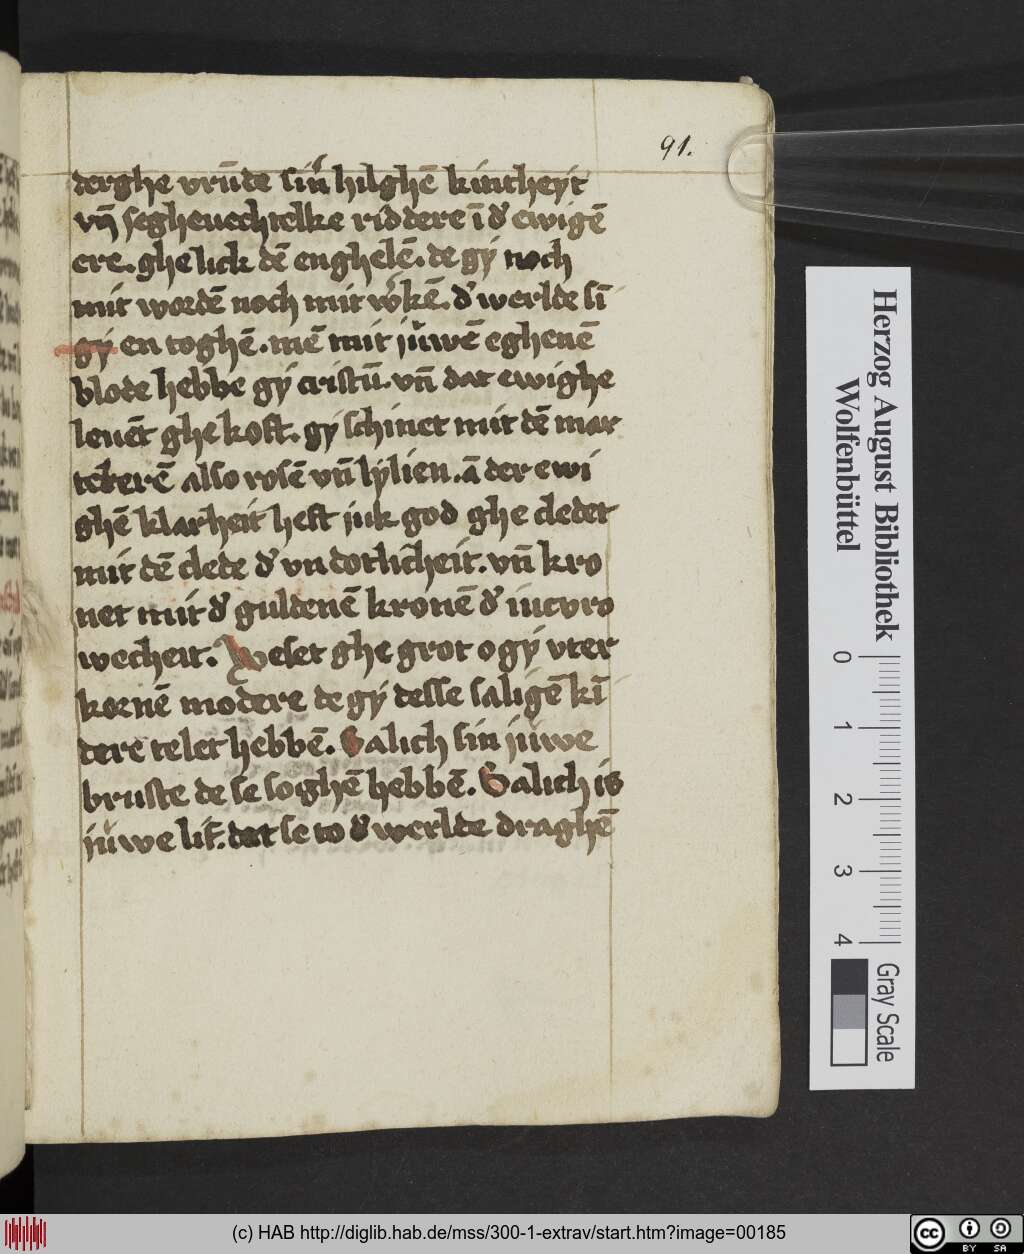 91.
derghe vrūde sin̄ hilghē kintheyt
vn̄ segheuechtelke riddere ī d' ewigē
ere. ghelick dē enghelē. de gy noch
mit wordē noch mit w'kē. d' werlde sī
gy en toghē. mē mit juwe eghenē
blode hebbe gy cristū. vn̄ dat ewighe
leuēt ghe kost. gy schinet mit dē mar
telerē also rosē vn̄ lylien. ā der ewi
ghē klarheit heft juk god ghe cledet
mit dē clede d' vn dotlicheit. vn̄ kro
net mit d' guldenē kronē d' incvro
wecheit. Weset ghe grot o gy vter
kornē modere de gy desse saligē kī
dere telet hebbē. Salich sin juwe
bruste de se soighē hebbē. Salich is
juwe lif. dat se to d' werlde draghē
Herzog August Bibliothek
Wolfenbüttel
0 1 2 3 4
Gray Scale
(c) HAB http://diglib.hab.de/mss/300-1-extrav/start.htm?image=00185
cc BY SA